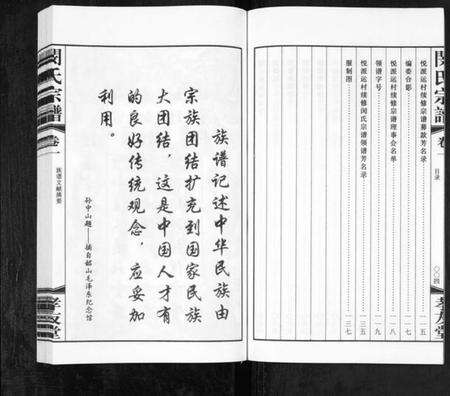 閔氏宗譜
卷一
目录
〇〇四
孝友堂
悦派运村续修宗谱募款芳名录
一五
编委合影
一七
悦派运村续修宗谱理事会名单
一八
领谱字号
一九
悦派运村续修闵氏宗谱领谱芳名录
三五
服制图
三七
族谱记述中华民族由
宗族团结扩充到国家民族
大团结，这是中国人才有
的良好传统观念，应妥加
利用。
孙中山题——摘自韶山毛泽东纪念馆
閔氏宗譜
卷一
族谱文献摘要
孝友堂